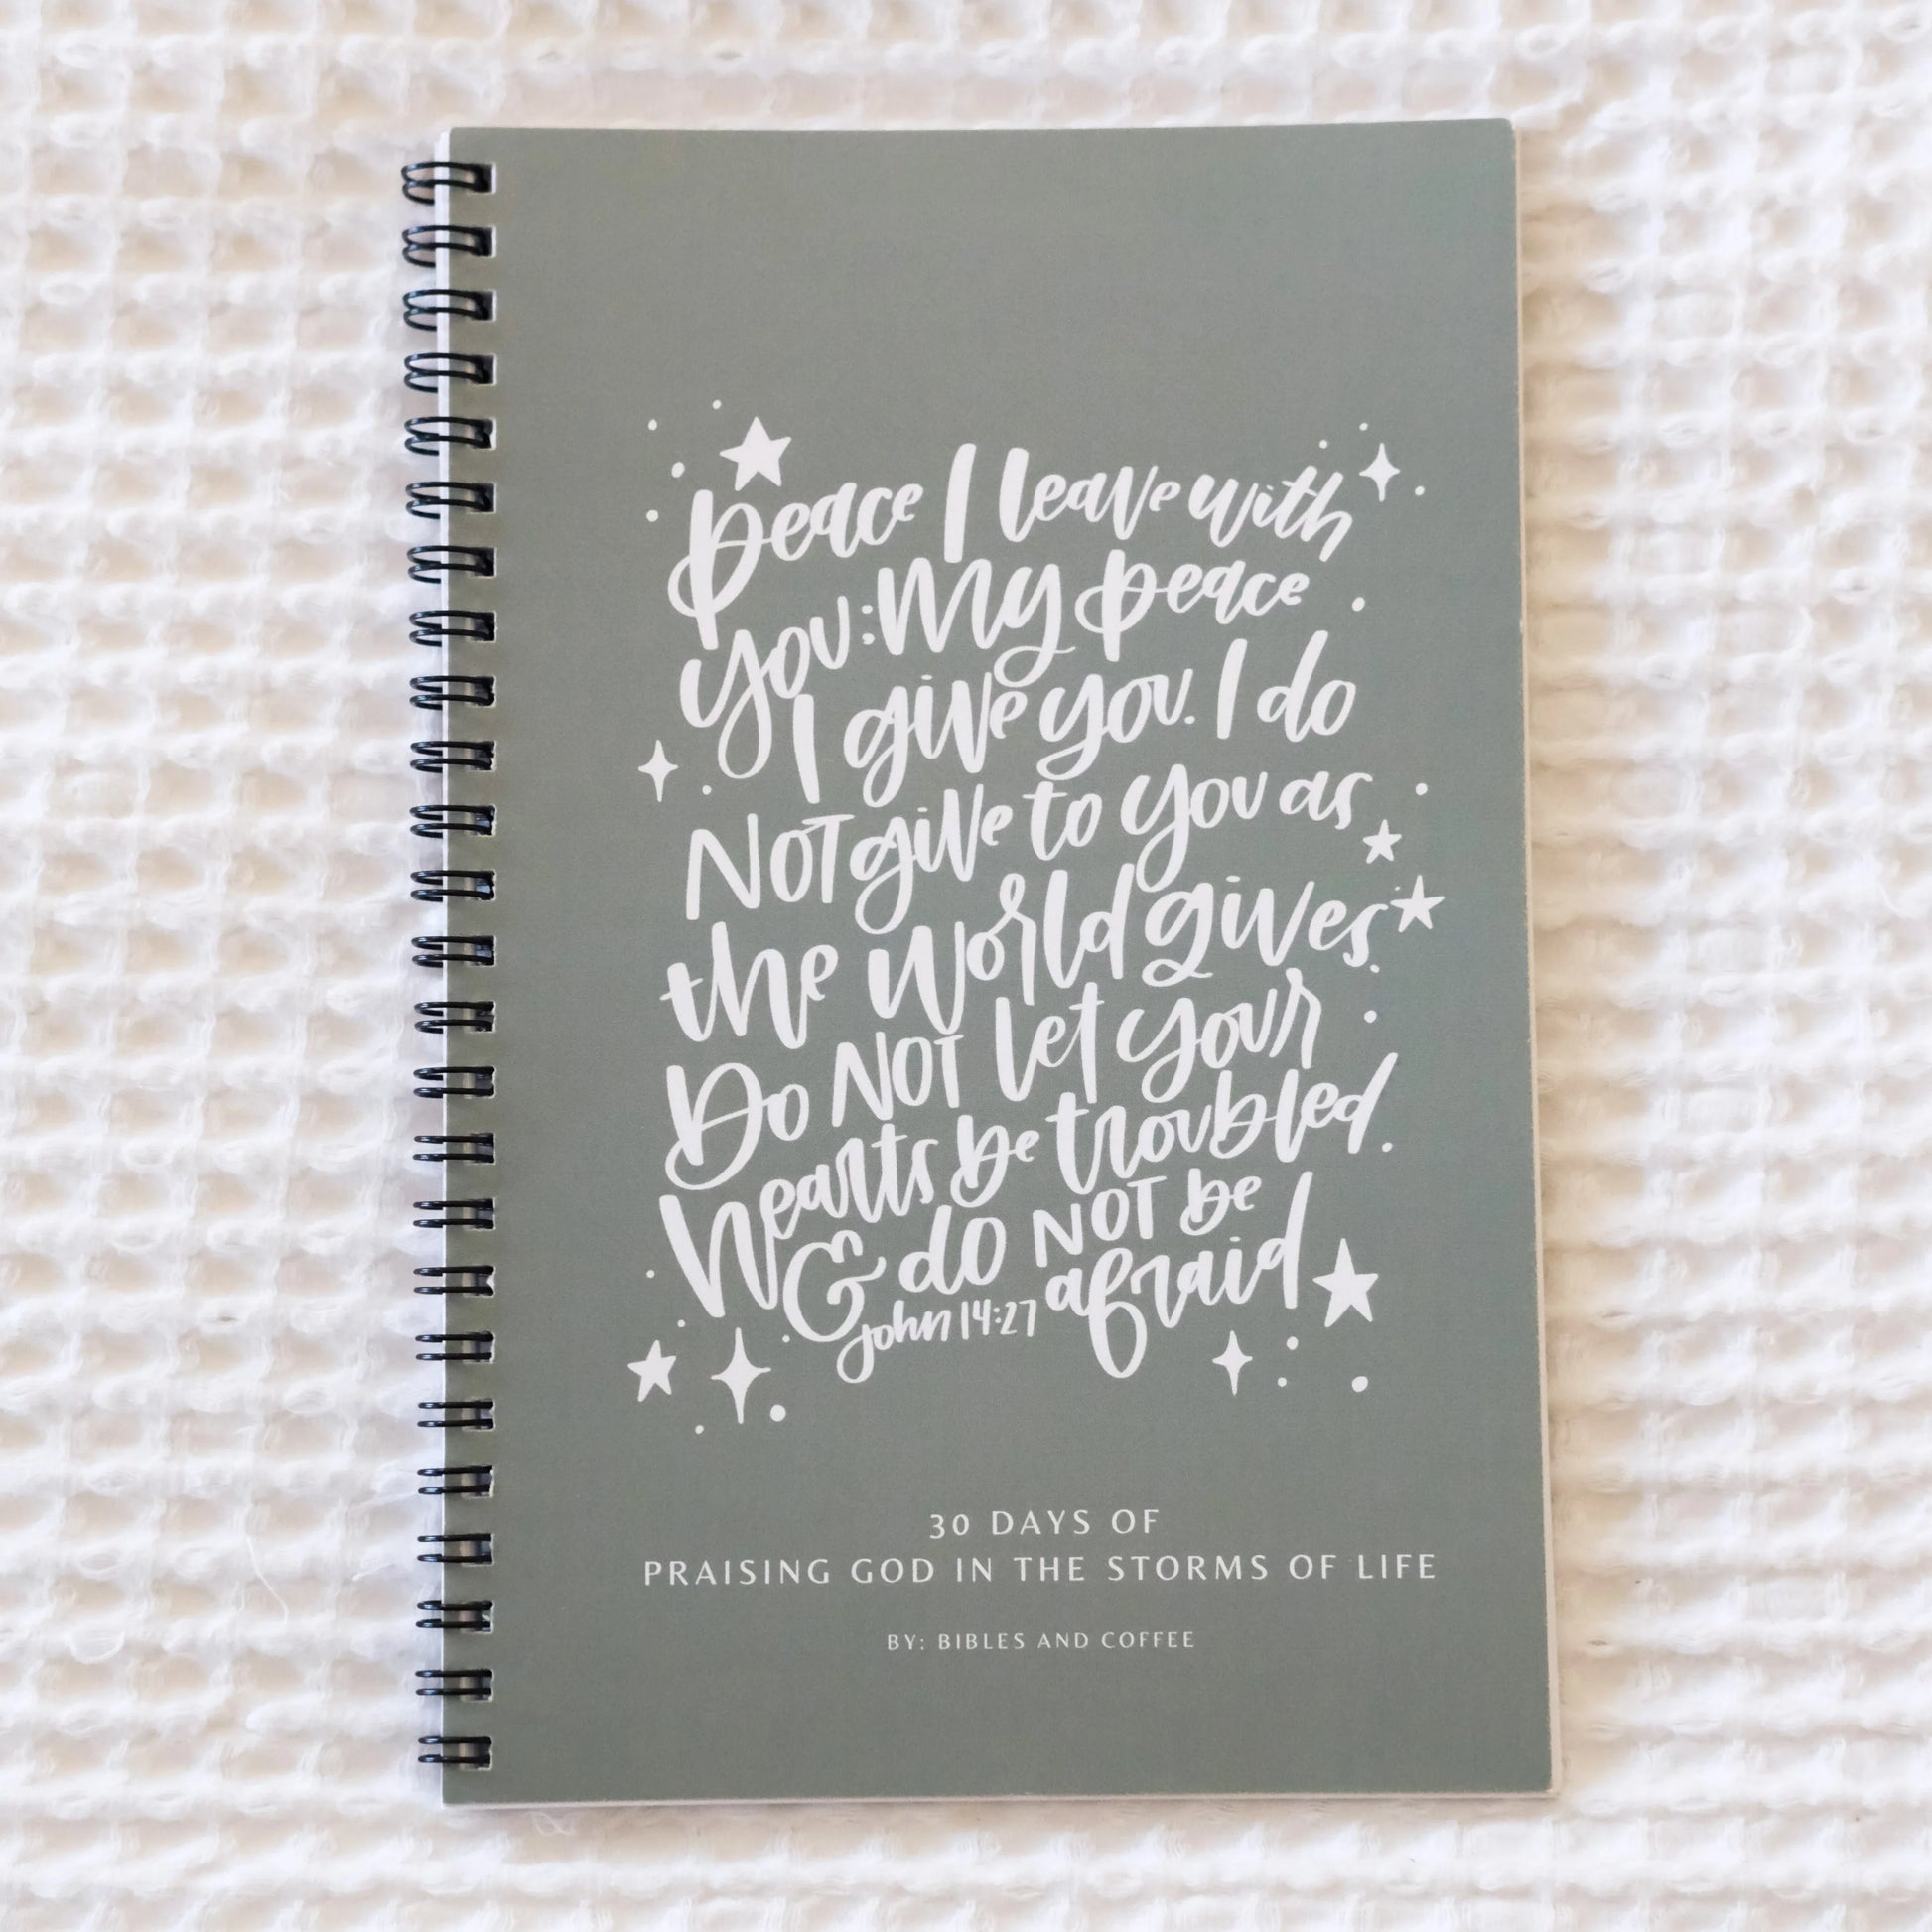 peace I leave with
you: My peace
I give you. I do
NOT give to you as
the world gives.
Do NOT let your
hearts be troubled.
& do NOT be
afraid
John 14:27
30 DAYS OF
PRAISING GOD IN THE STORMS OF LIFE
BY: BIBLES AND COFFEE